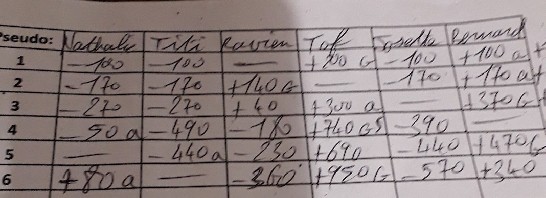 Pseudo: Nathalie Titi Xavier Taf Bernard
1 -100 -100 — +200 G -100 +100 a
2 -170 -170 +140 G — -170 +170 a
3 -270 -270 +40 +300 a — +370 G
4 -50 a -490 -180 +740 G -390 —
5 — -440 a -230 +690 -440 +470 G
6 +80 a — -360 +950 G -570 +340